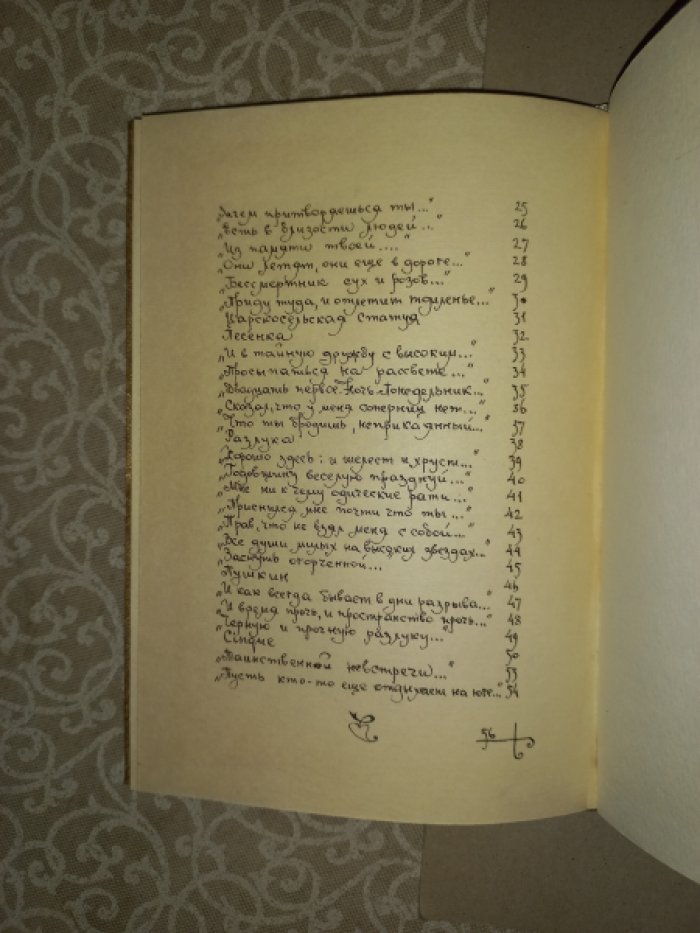 „Зачем притворяешься ты..." 25
„Есть в близости людей..." 26
„Из памяти твоей...." 27
„Они летят, они еще в дороге..." 28
„Бессмертник сух и розов..." 29
„Приду туда, и отлетит томленье..." 30
Царскосельская статуя 31
Песенка 32
„И в тайную дружбу с высоким..." 33
„Просыпаться на рассвете..." 34
„Двадцать первое. Ночь. Понедельник..." 35
„Сказал, что у меня соперниц нет..." 36
„Что ты бродишь, неприкаянный..." 37
Разлука 38
„Хорошо здесь: и шелест и хруст..." 39
„Годовщину веселую празднуй..." 40
„Мне ни к чему одические рати..." 41
„Приснился мне почти что ты..." 42
„Прав, что не взял меня с собой..." 43
„Все души милых на высоких звездах..." 44
„Заснуть огорченной... 45
Пушкин 46
„И как всегда бывает в дни разрыва..." 47
„И время прочь, и пространство прочь..." 48
„Черную и прочную разлуку..." 49
Cinque 50
„Таинственной невстречи..." 53
„Пусть кто-то еще отдыхает на юге..." 54
56